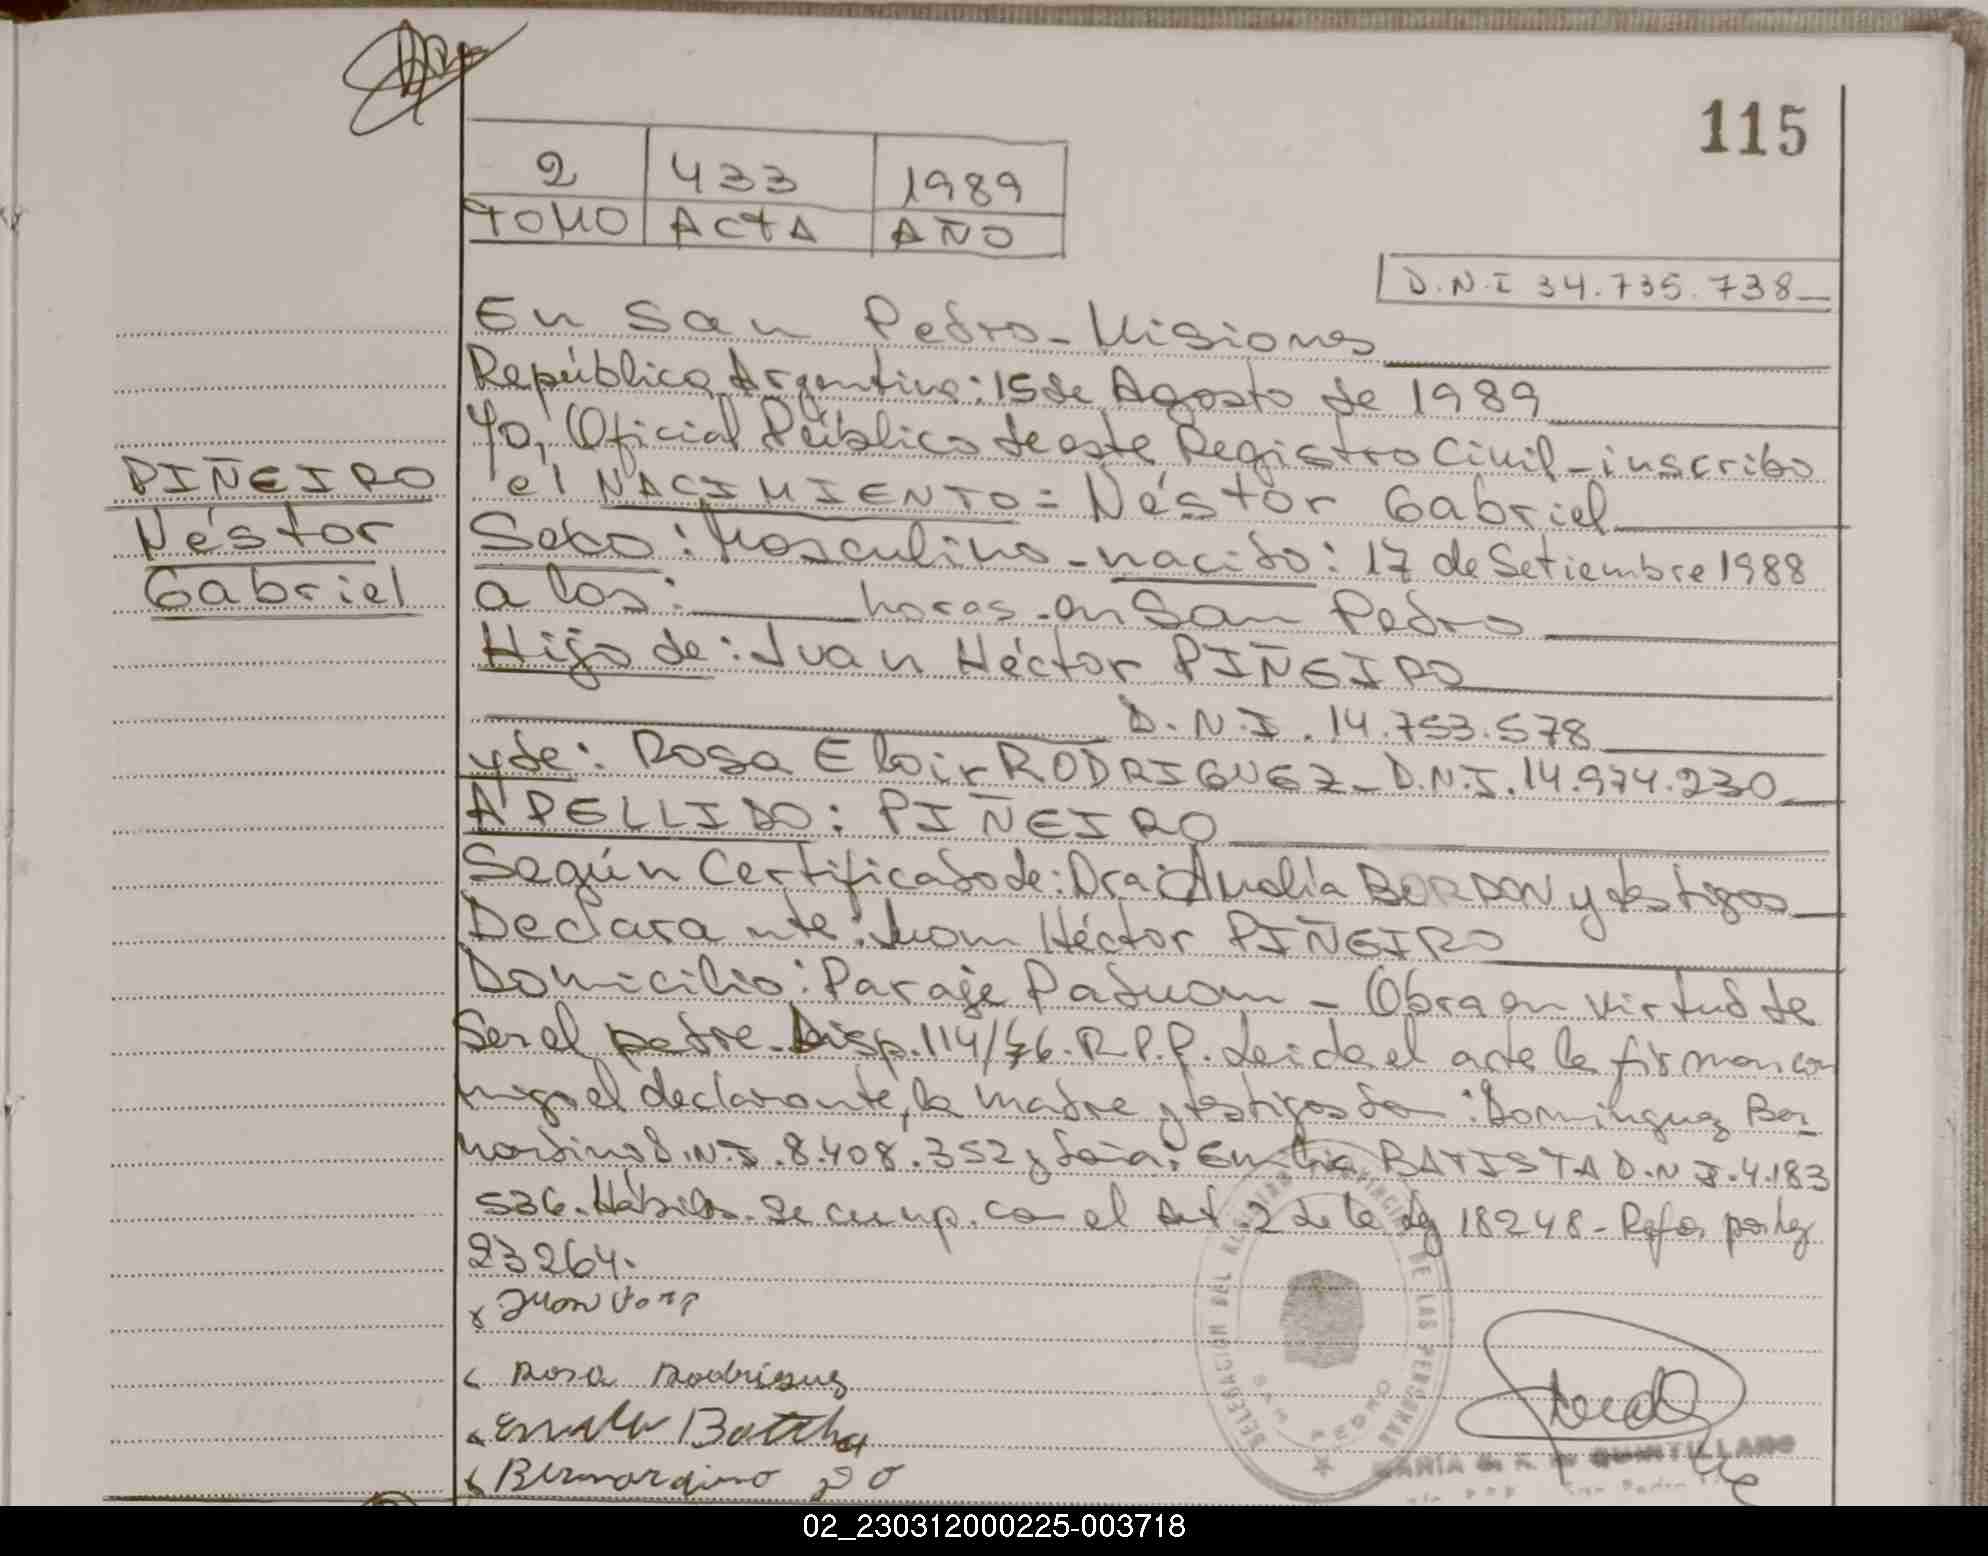 115
2 433 1989
TOMO ACTA AÑO
D.N.I 34.735.738
En San Pedro - Misiones
República Argentina: 15 de Agosto de 1989
Yo, Oficial Público de este Registro Civil - inscribo
el NACIMIENTO = Néstor Gabriel
PIÑEIRO
Néstor
Gabriel
Sexo: Masculino - nacido: 17 de Setiembre 1988
a las: horas - en San Pedro
Hijo de: Juan Héctor PIÑEIRO
D.N.I. 14.753.578
y de: Rosa Eloir RODRIGUEZ - D.N.I. 14.974.230
APELLIDO: PIÑEIRO
Según Certificado de: Dra: Amalia BORDON y testigos
Declarante: Juan Héctor PIÑEIRO
Domicilio: Paraje Paduan - Obra en virtud de
ser el padre. Disp. 114/76. R.P.P. Leida el acta la firman con
migo el declarante, la madre y testigos Don: Domínguez Ber_
nardino D.N.I. 8.408.352 y Doña: Emilia BATISTA D.N.I. 4.183
536. Hábiles. Se cump. con el Art. 2 de la Ley 18248 - Refor por Ley
23264.
x Juan
Rosa Rodriguez
Bernardino
DELEGACION DEL REGISTRO PROVINCIAL DE LAS PERSONAS
SAN PEDRO
QUINTILLANO
02_230312000225-003718